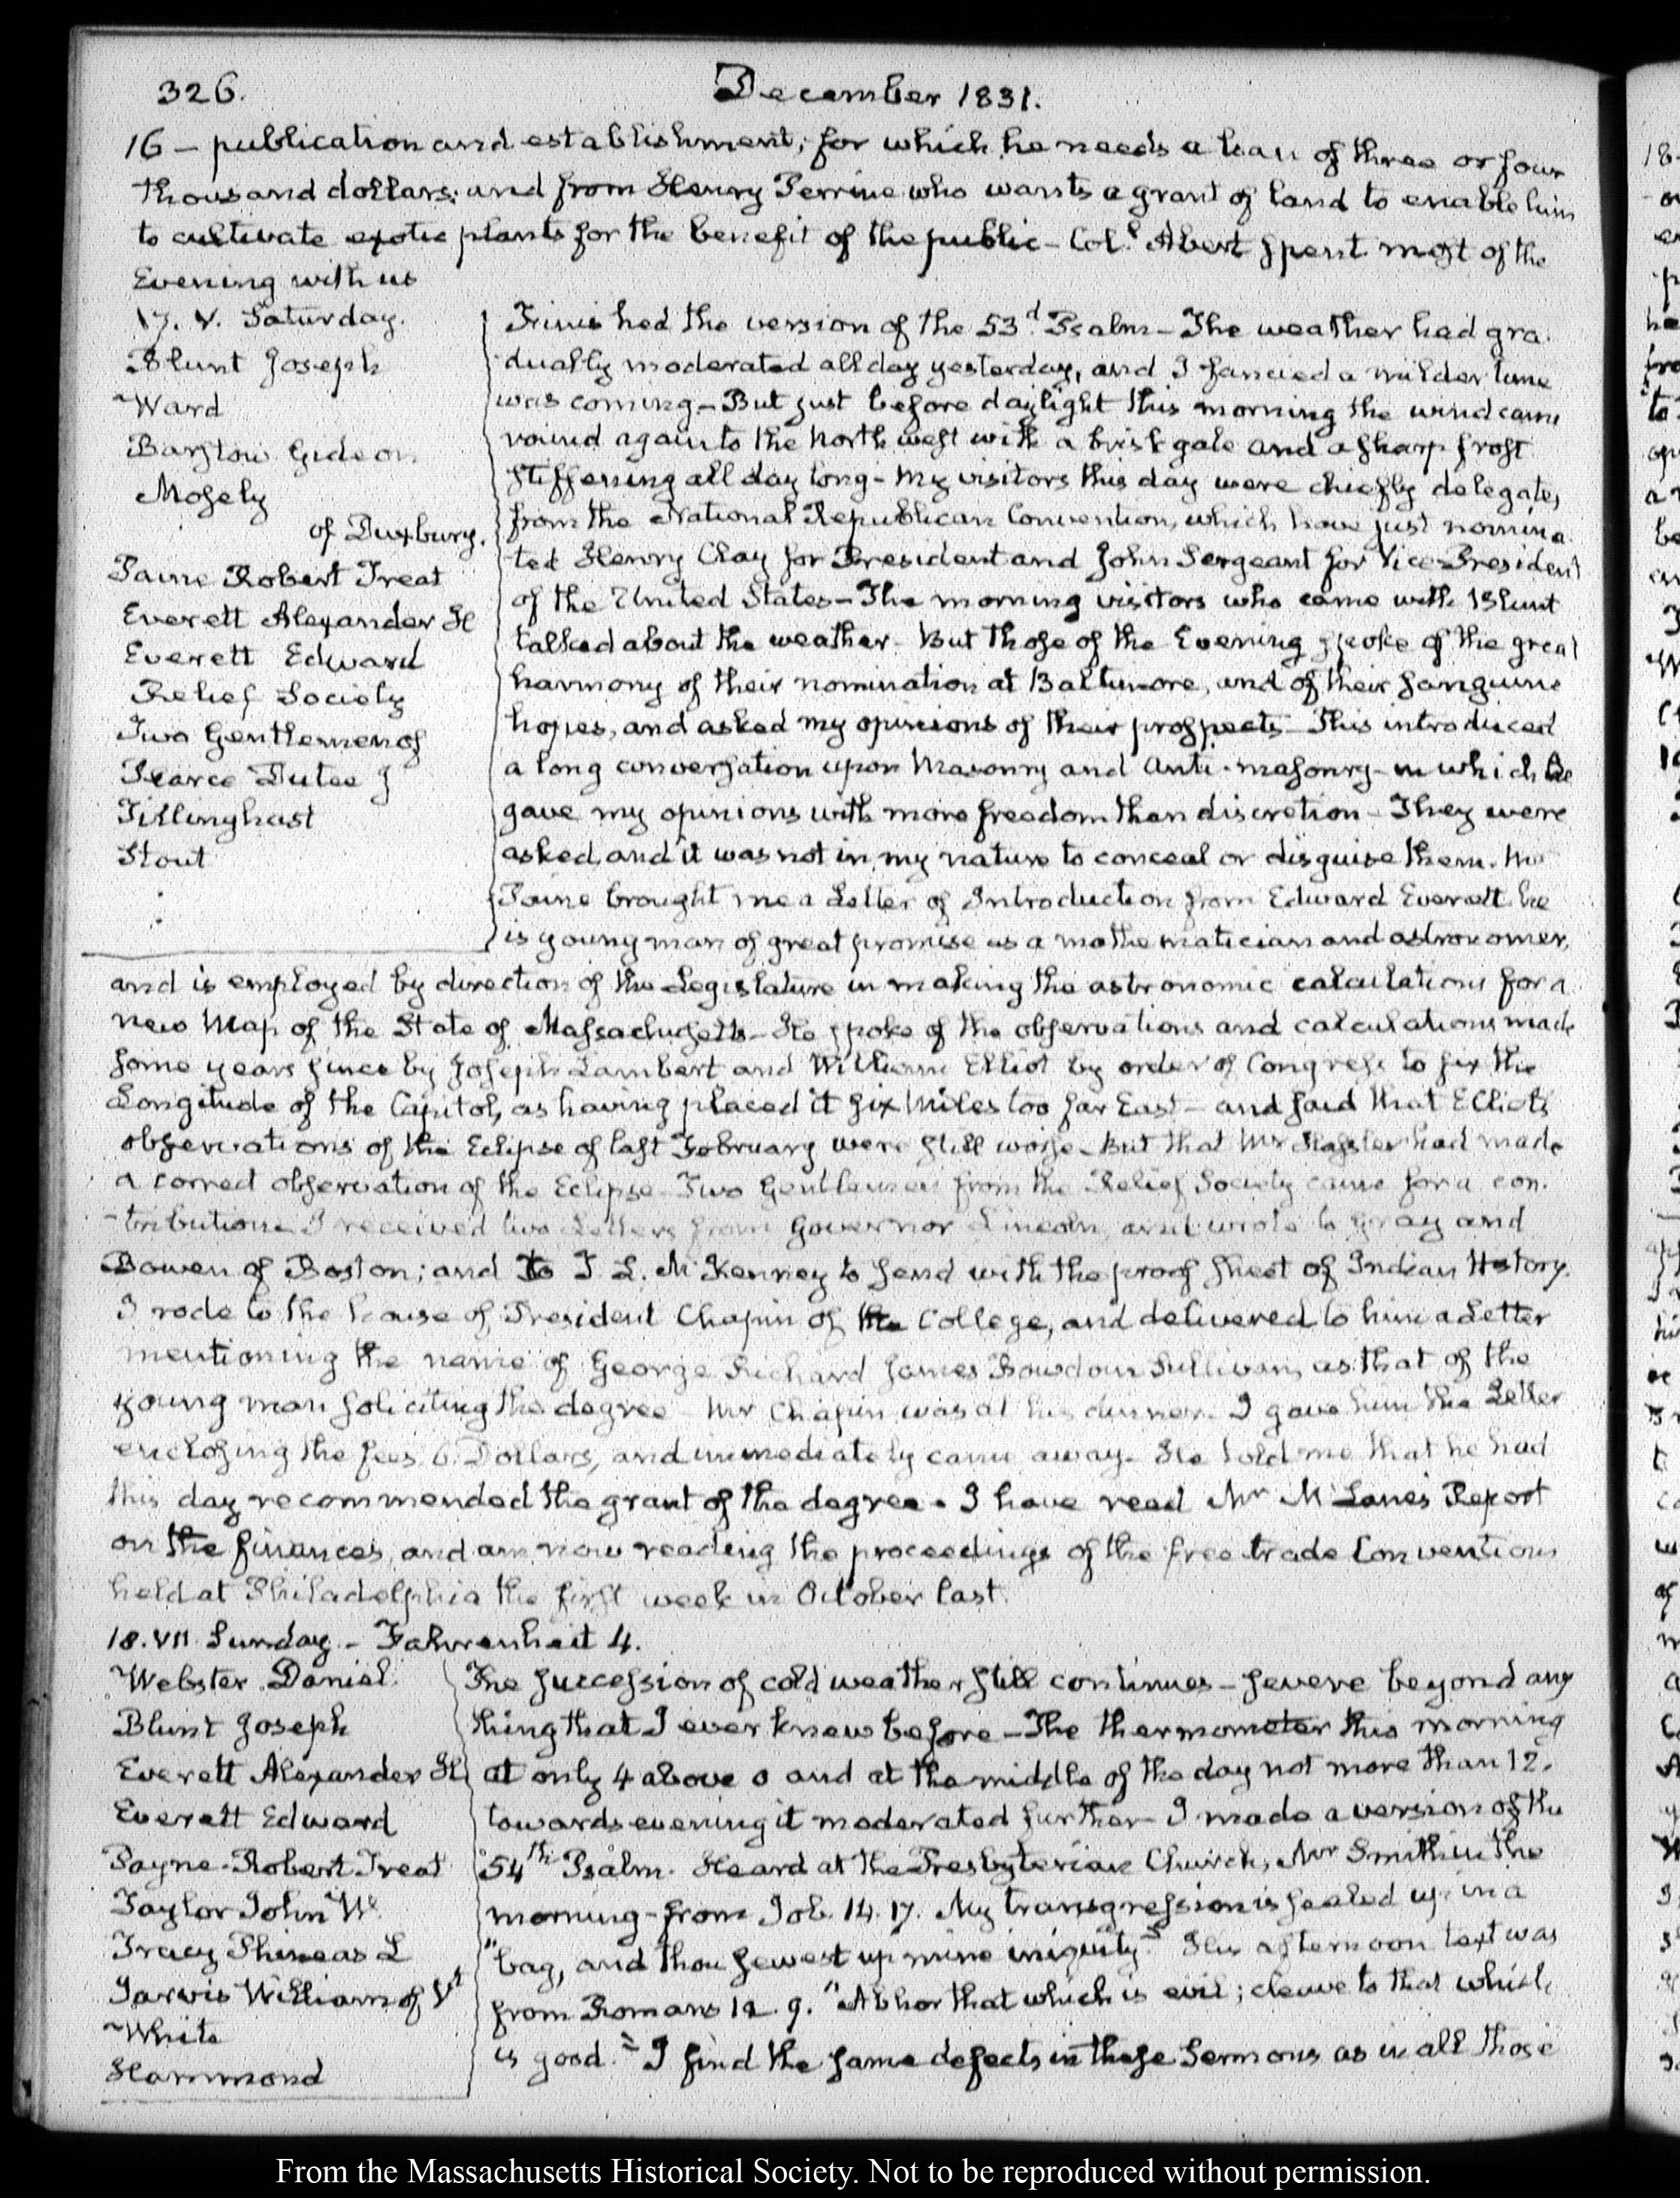 326.
December 1831.
16 — publication and establishment; for which he needs a loan of three or four
thousand dollars; and from Henry Perrine who wants a grant of land to enable him
to cultivate exotic plants for the benefit of the public — Col.l Abert spent most of the
Evening with us
17. V. Saturday.
Blunt Joseph
Ward
Barstow Gideon
Mosely
of Duxbury.
Paine Robert Treat
Everett Alexander H
Everett Edward
Relief Society
Two Gentlemen of
Pearce Dutee J
Tillinghast
Stout
Finished the version of the 53.d Psalm — The weather had gra-
dually moderated all day yesterday, and I fancied a milder time
was coming — But just before daylight this morning the wind came
round again to the North west with a brisk gale and a sharp frost
stiffening all day long — My visitors this day were chiefly delegates
from the National Republican Convention, which have just nomina-
ted Henry Clay for President and John Sergeant for Vice-President
of the United States — The morning visitors who came with Blunt
talked about the weather — But those of the Evening spoke of the great
harmony of their nomination at Baltimore, and of their sanguine
hopes, and asked my opinions of their prospects — This introduced
a long conversation upon Masonry and Anti-masonry — in which I
gave my opinions with more freedom than discretion — They were
asked, and it was not in my nature to conceal or disguise them. Mr
Paine brought me a Letter of Introduction from Edward Everett. he
is young man of great promise as a mathematician and astronomer,
and is employed by direction of the Legislature in making the astronomic calculations for a
new Map of the State of Massachusetts — He spoke of the observations and calculations made
some years since by Joseph Lambert and William Elliot by order of Congress to fix the
Longitude of the Capitol, as having placed it six Miles too far East — and said that Elliot's
observations of the Eclipse of last February were still worse — But that Mr Hassler had made
a correct observation of the Eclipse — Two Gentlemen from the Relief Society came for a con-
-tribution — I received two Letters from Governor Lincoln, and wrote to Gray and
Bowen of Boston; and to T. L. McKenney to send with the proof sheet of Indian History.
I rode to the house of President Chapin of the College, and delivered to him a Letter
mentioning the name of George Richard James Bowdoin Sullivan, as that of the
young man soliciting the degree — Mr Chapin was at his dinner. I gave him the Letter
enclosing the fees 6. Dollars, and immediately came away. He told me that he had
this day recommended the grant of the degree. I have read Mr McLane's Report
on the finances, and am now reading the proceedings of the free trade Convention
held at Philadelphia the first week in October last.
18. VII. Sunday. — Fahrenheit 4.
Webster Daniel
Blunt Joseph
Everett Alexander H
Everett Edward
Payne Robert Treat
Taylor John W
Tracy Phineas L
Jarvis William of Vt
White
Hammond
The succession of cold weather still continues — severe beyond any
thing that I ever knew before — The thermometer this morning
at only 4 above 0 and at the middle of the day not more than 12.
towards evening it moderated further — I made a version of the
54th Psalm. Heard at the Presbyterian Church, Mr Smith in the
morning — from Job. 14. 17. My transgression is sealed up in a
"bag, and thou sewest up mine iniquity." His afternoon text was
from Romans 12. 9. "Abhor that which is evil; cleave to that which
is good." I find the same defects in these Sermons as in all those
From the Massachusetts Historical Society. Not to be reproduced without permission.